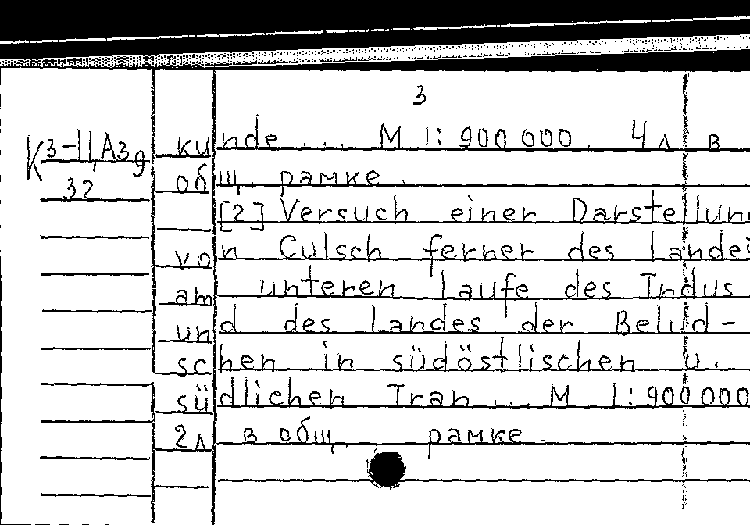 3
К3-Ц,Аз9
32
kunde ... M 1:900000. 4 л в
общ. рамке.
[2] Versuch einer Darstellun
von Culsch ferner des Landes
am unteren Laufe des Indus
und des Landes der Belud-
schen in südöstlischen u.
südlichen Iran ... M 1:900000
2л в общ. рамке